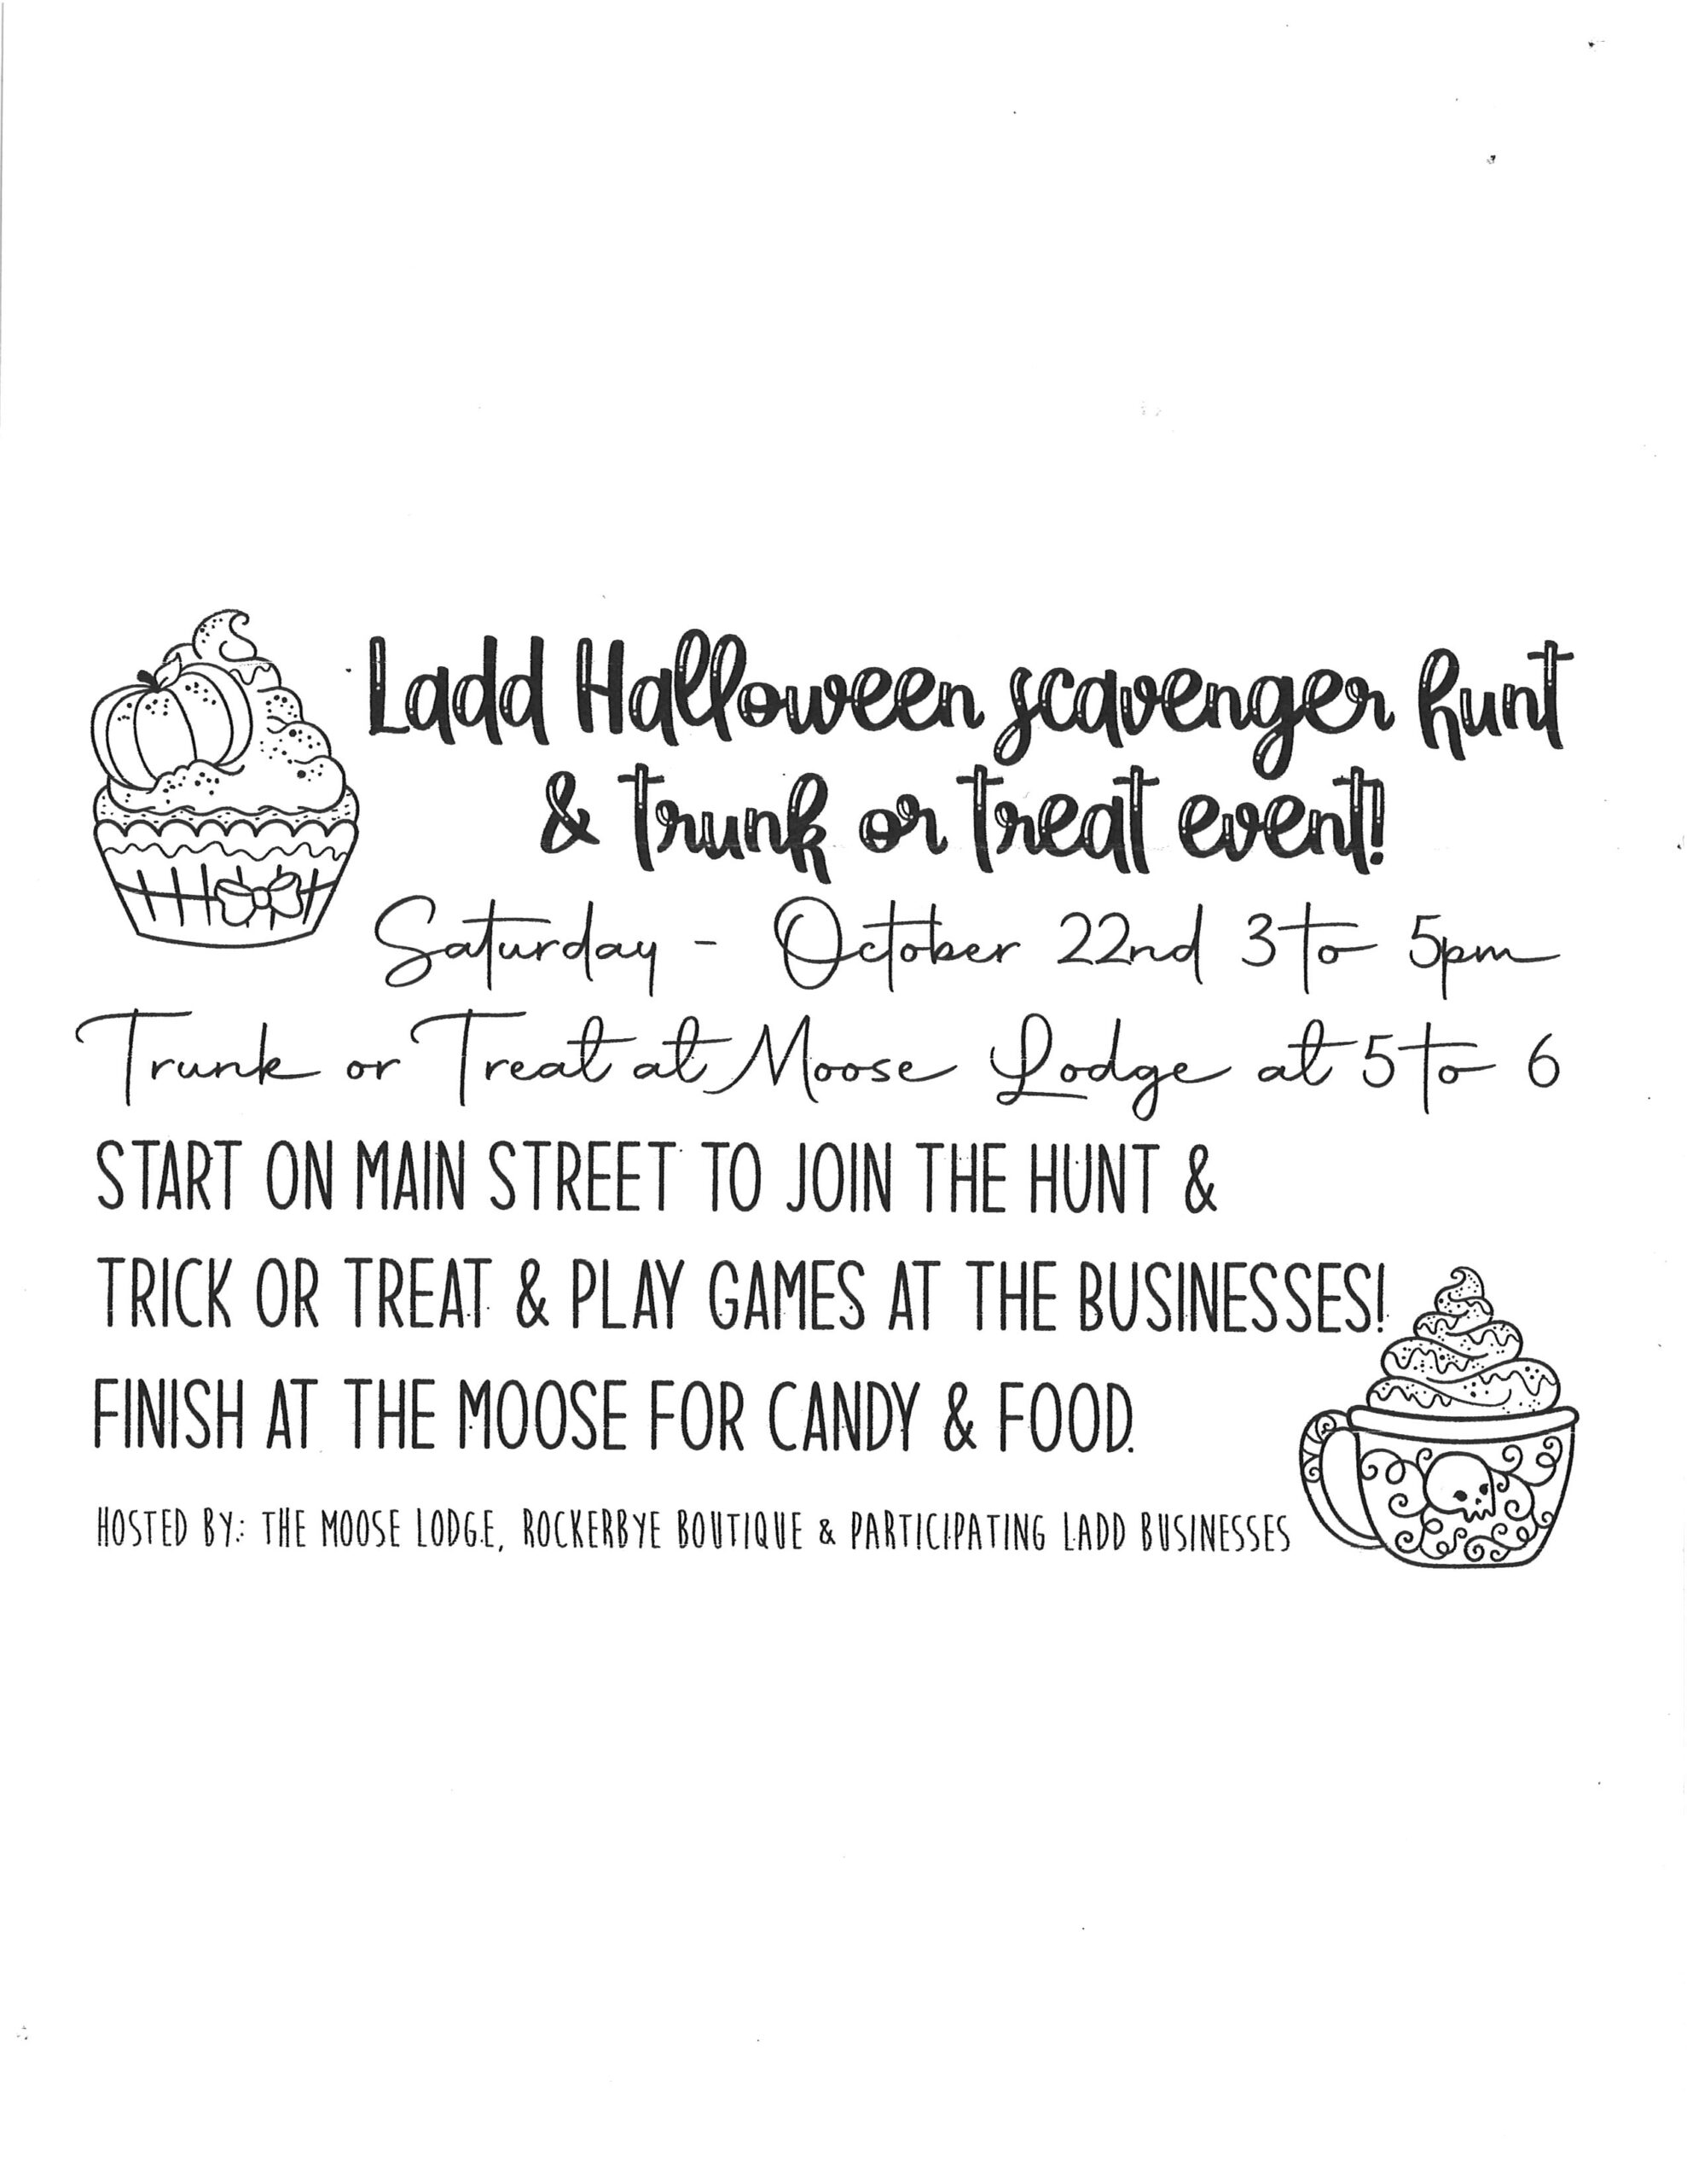 Ladd Halloween scavenger hunt
& trunk or treat event!
Saturday - October 22nd 3 to 5pm
Trunk or Treat at Moose Lodge at 5 to 6
START ON MAIN STREET TO JOIN THE HUNT &
TRICK OR TREAT & PLAY GAMES AT THE BUSINESSES!
FINISH AT THE MOOSE FOR CANDY & FOOD.
HOSTED BY: THE MOOSE LODGE, ROCKERBYE BOUTIQUE & PARTICIPATING LADD BUSINESSES